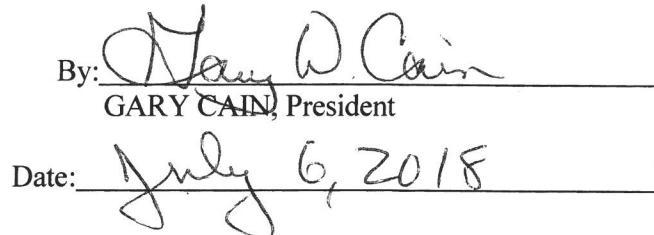 By: Gary D. Cain
GARY CAIN, President
Date: July 6, 2018